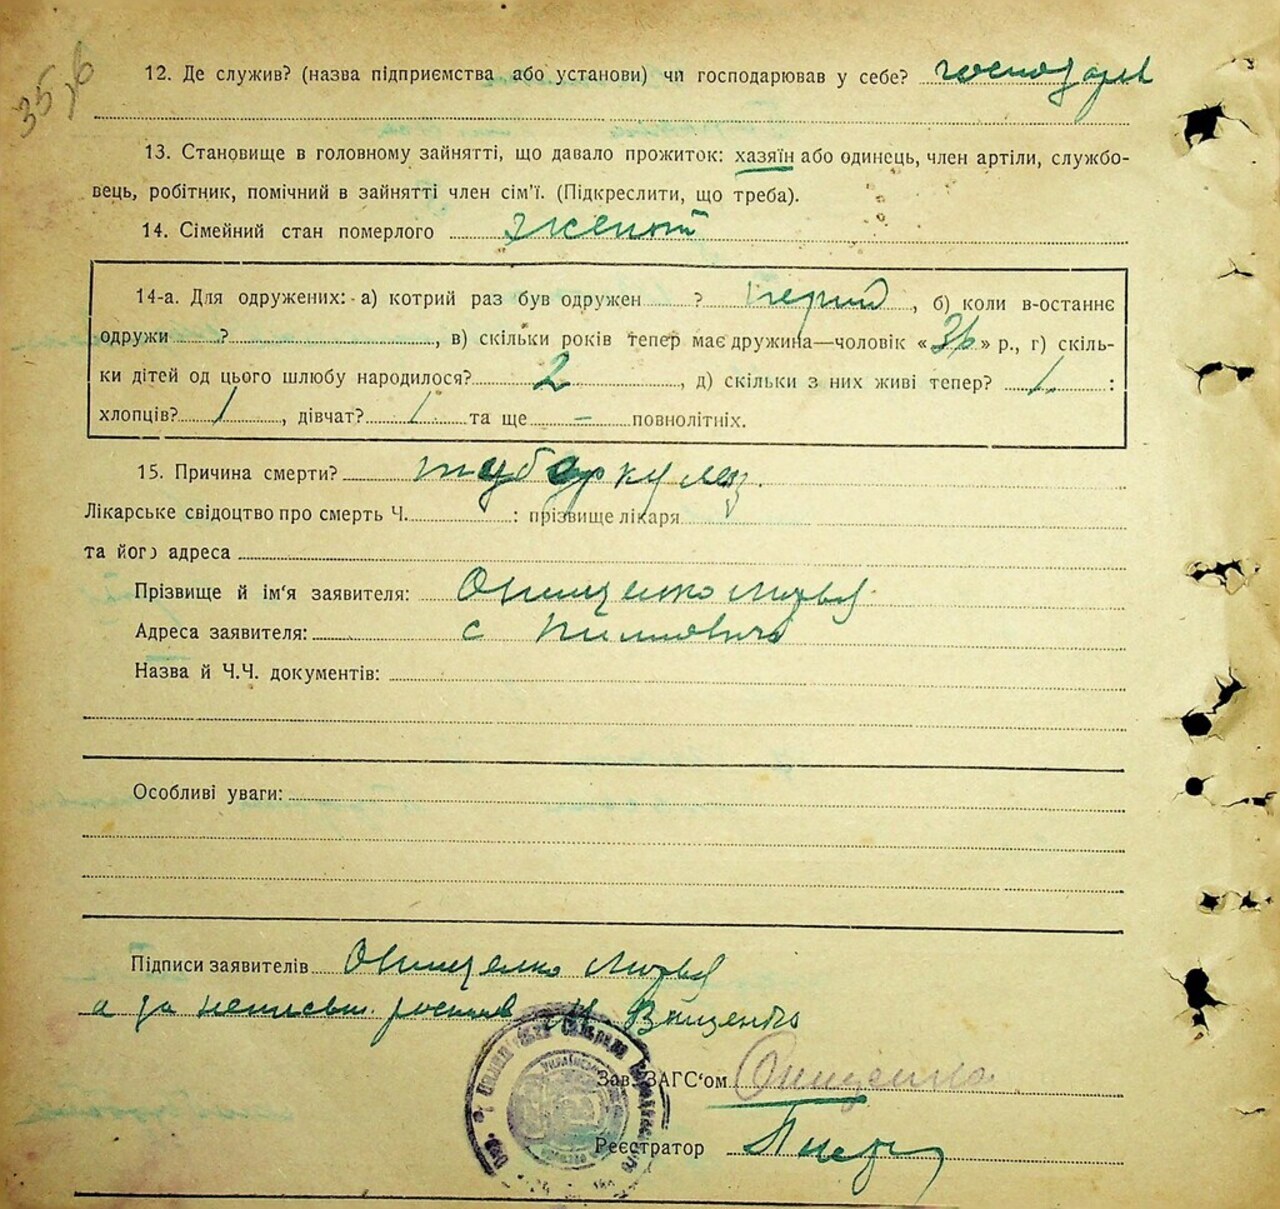 35, 6
12. Де служив? (назва підприємства або установи) чи господарював у себе? господарив
13. Становище в головному зайнятті, що давало прожиток: хазяїн або одинець, член артіли, службо-
вець, робітник, помічний в зайнятті член сім'ї. (Підкреслити, що треба).
14. Сімейний стан померлого женот
14-а. Для одружених: а) котрий раз був одружен ? перший, б) коли в-останнє
одружи ?, в) скільки років тепер має дружина—чоловік «36» р., г) скіль-
ки дітей од цього шлюбу народилося? 2, д) скільки з них живі тепер? 1 :
хлопців? 1, дівчат? 1 та ще – повнолітніх.
15. Причина смерти? туберкулез.
Лікарське свідоцтво про смерть Ч. : прізвище лікаря
та його адреса
Прізвище й ім'я заявителя: Онищенко
Адреса заявителя: с
Назва й Ч.Ч. документів:
Особливі уваги:
Підписи заявителів Онищенко
а за
Зав. ЗАГС'ом Онищенко
Реєстратор